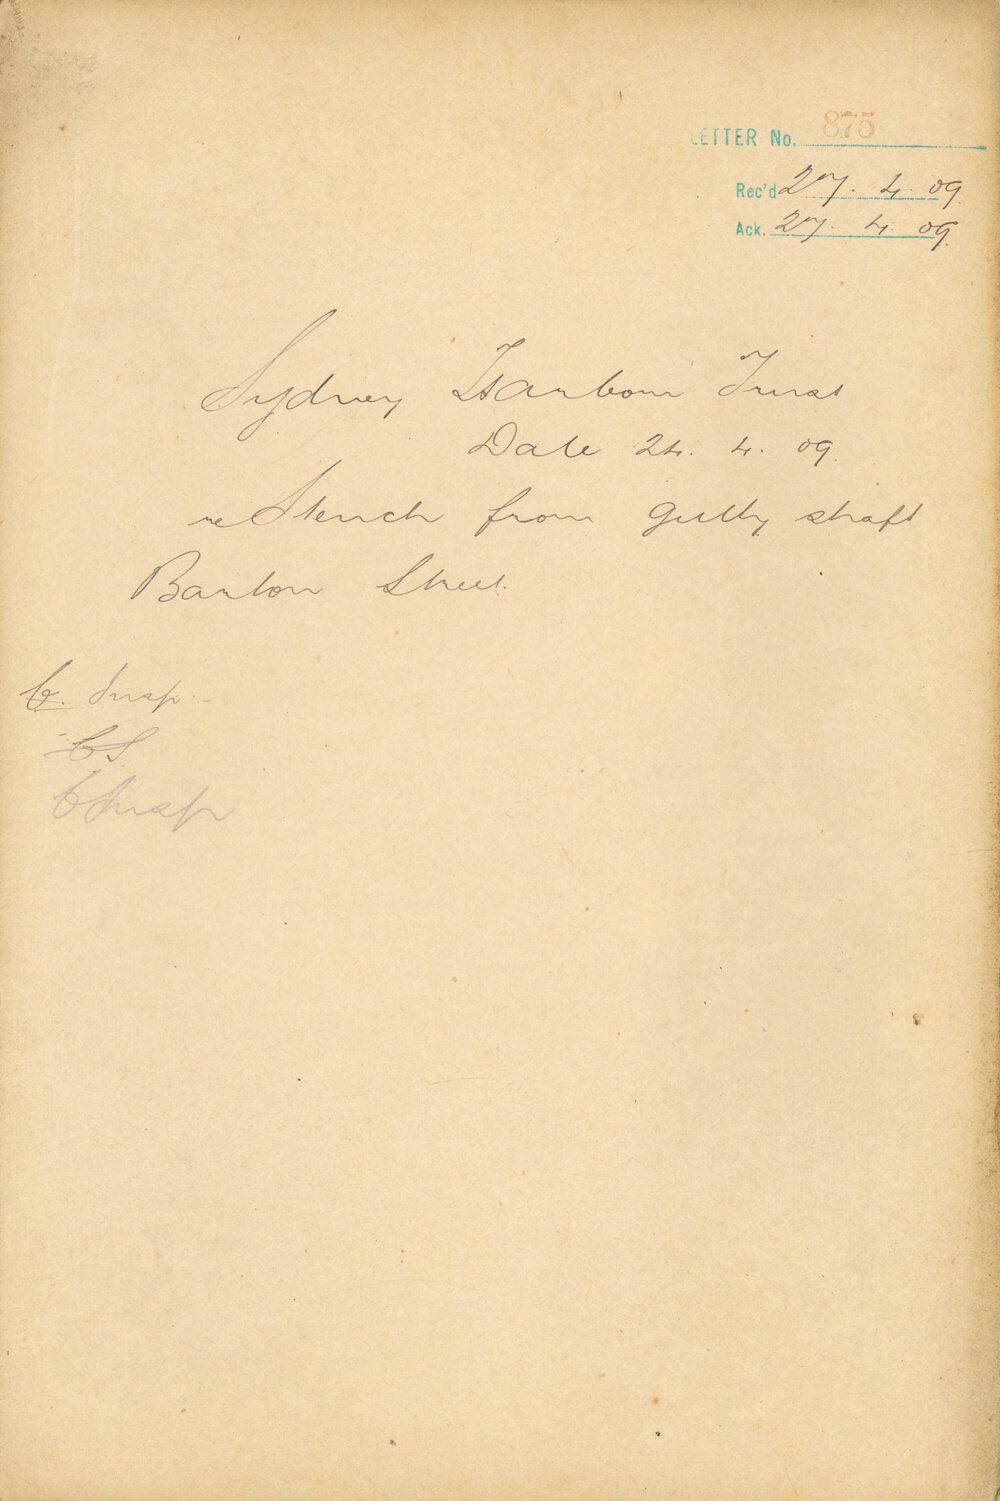 LETTER No. 875
Rec'd 27. 4. 09.
Ack. 27. 4. 09.
Sydney Harbour Trust
Date 24. 4. 09.
re Stench from gully shaft
Barton Street.
C. Insp.
CS.
C Insp